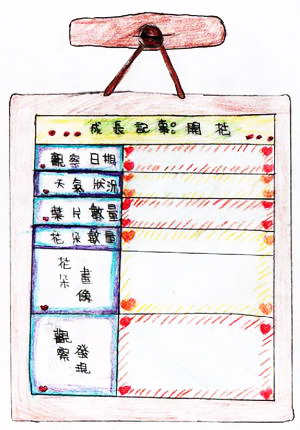 成長記事:開花
觀察日期
天氣狀況
葉片數量
花朵數量
花朵畫像
觀察發現